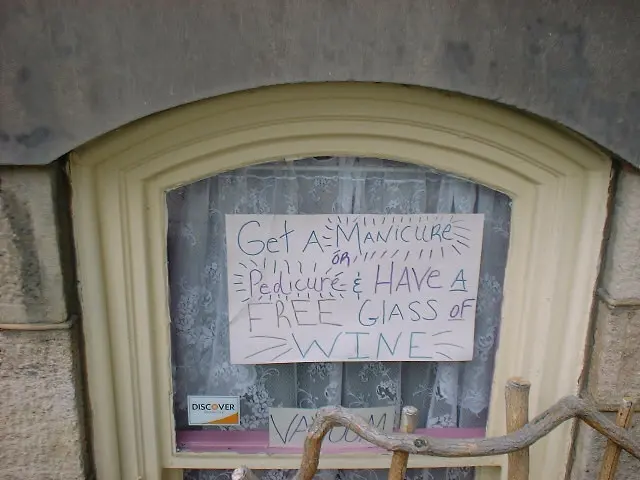 Get A MANICURE
OR
Pedicure & HAVE A
FREE GLASS OF
WINE
DISCOVER
VACUUM